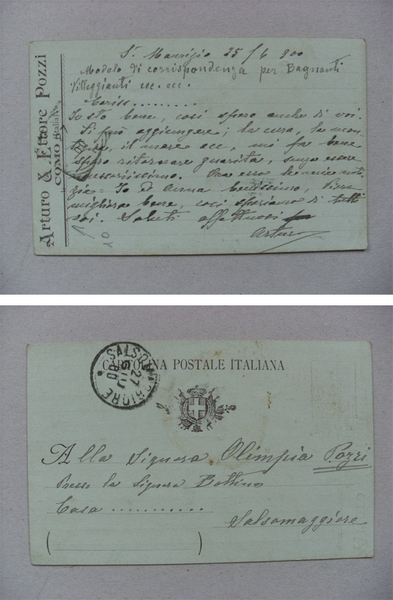 Arturo & Ettore Pozzi
COMO (Italia)
St. Maurizio 25/6 900
Modolo di corrispondenza per Bagnanti
Villeggianti ecc. ecc.
Cariss.........
Io sto bene, così spero anche di voi.
Si può aggiungere; la cura, la mon-
il mare ecc, mi fa bene
spero ritornare guarita,
notizie
Io ed Anna benissimo,
bene, così speriamo di tutti
voi. Saluti affettuosi
Arturo
SALSOMAGGIORE
27
CARTOLINA POSTALE ITALIANA
Alla Signora Olimpia Pozzi
Presso la Signora Bottino
Casa ..........
Salsomaggiore